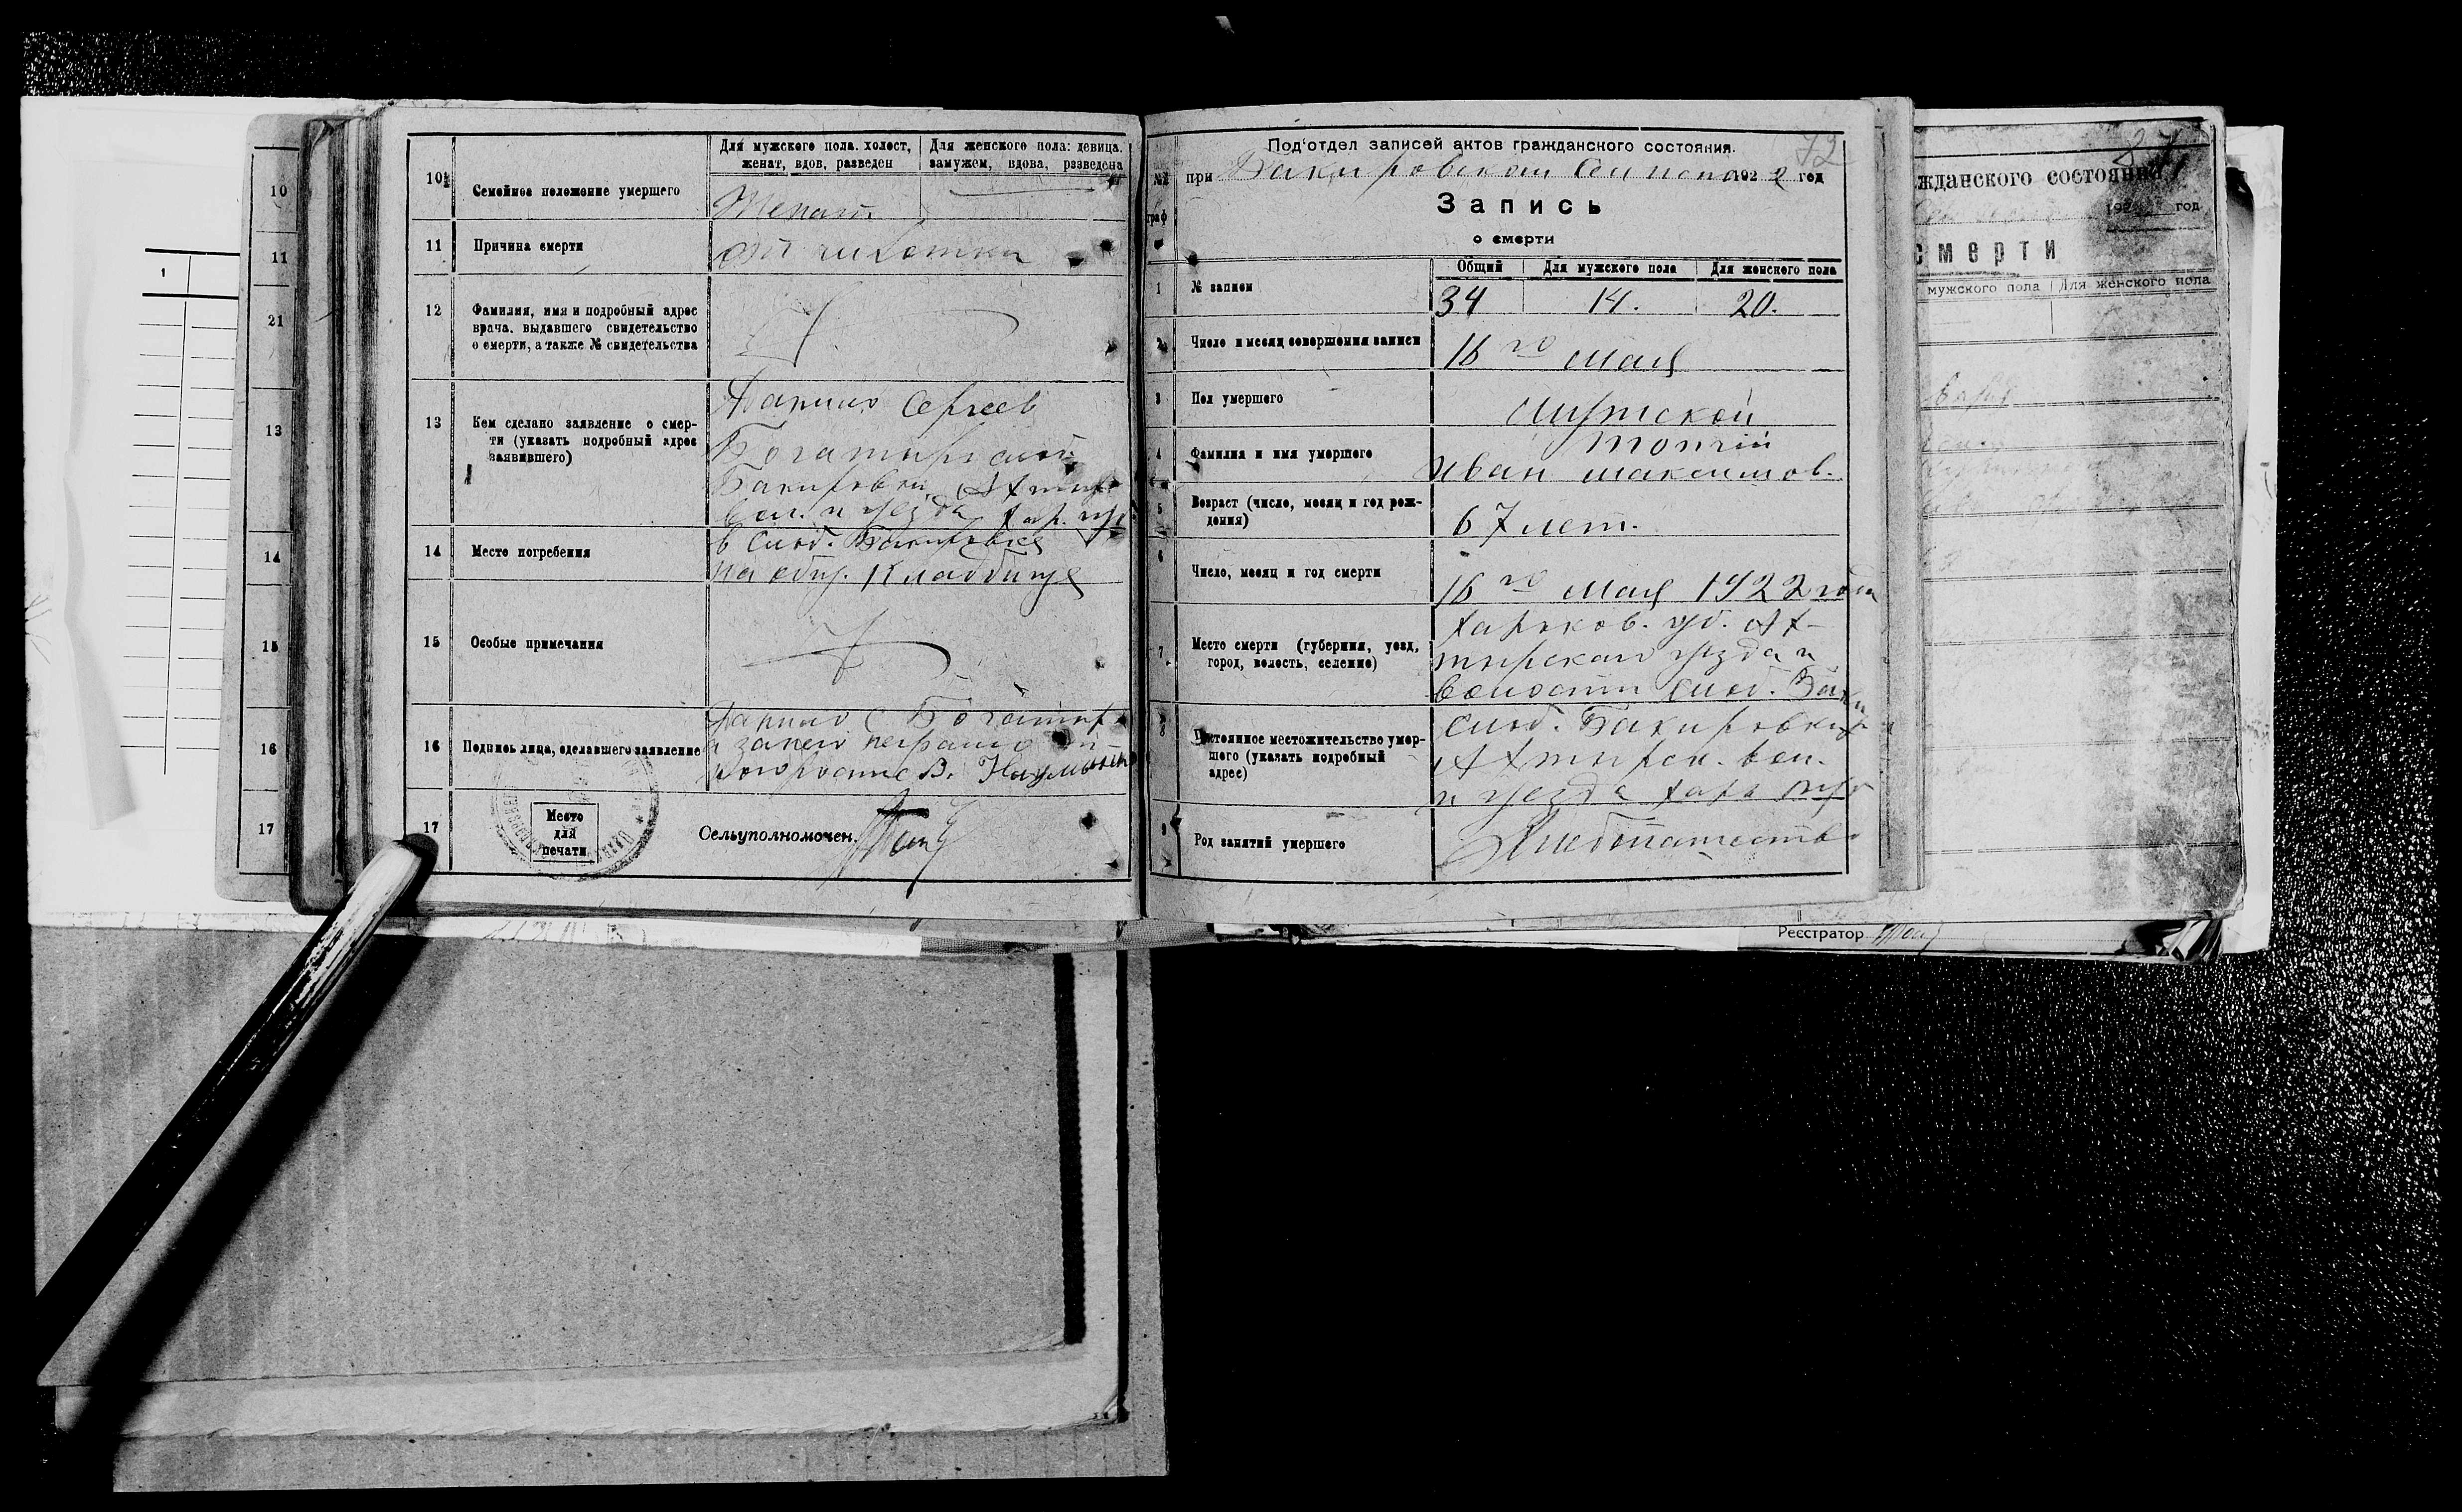 10
11
21
13
14
15
16
17
1
10
Семейное положение умершего
Для мужского пола: холост, женат, вдов, разведен
Для женского пола: девица, замужем, вдова, разведена
Женат
11
Причина смерти
от чихотки
12
Фамилия, имя и подробный адрес
врача, выдавшего свидетельство
о смерти, а также № свидетельства
13
Кем сделано заявление о смер-
ти (указать подробный адрес
заявившего)
Сергеев
Бакировки Ахтыр
вол. и уезда Хар. губ
14
Место погребения
в слоб. Бакировке
на общ. Кладбище
15
Особые примечания
16
Подпись лица, сделавшего заявление
17
Место
для
печати
Сельуполномочен.
72
Под'отдел записей актов гражданского состояния.
при Бакировском 1922 год
№№
граф
Запись
о смерти
Общий
Для мужского пола
Для женского пола
1
№ записи
34
14.
20.
2
Число и месяц совершения записи
16го мая
3
Пол умершего
мужской
4
Фамилия и имя умершего
Топчій
Иван Максимов.
5
Возраст (число, месяц и год рож-
дения)
67 лет.
6
Число, месяц и год смерти
16го мая 1922 года
7
Место смерти (губерния, уезд,
город, волость, селение)
Харьков. губ. Ах-
тырскаго уезда и
волости слоб. Баки
8
Постоянное местожительство умер-
шего (указать подробный
адрес)
слоб. Бакировки
Ахтырск. вол.
и уезда Харк губ
9
Род занятий умершего
Хлебопашество
87
жданского состояния
192 год
смерти
мужского пола
Для женского пола
Реєстратор